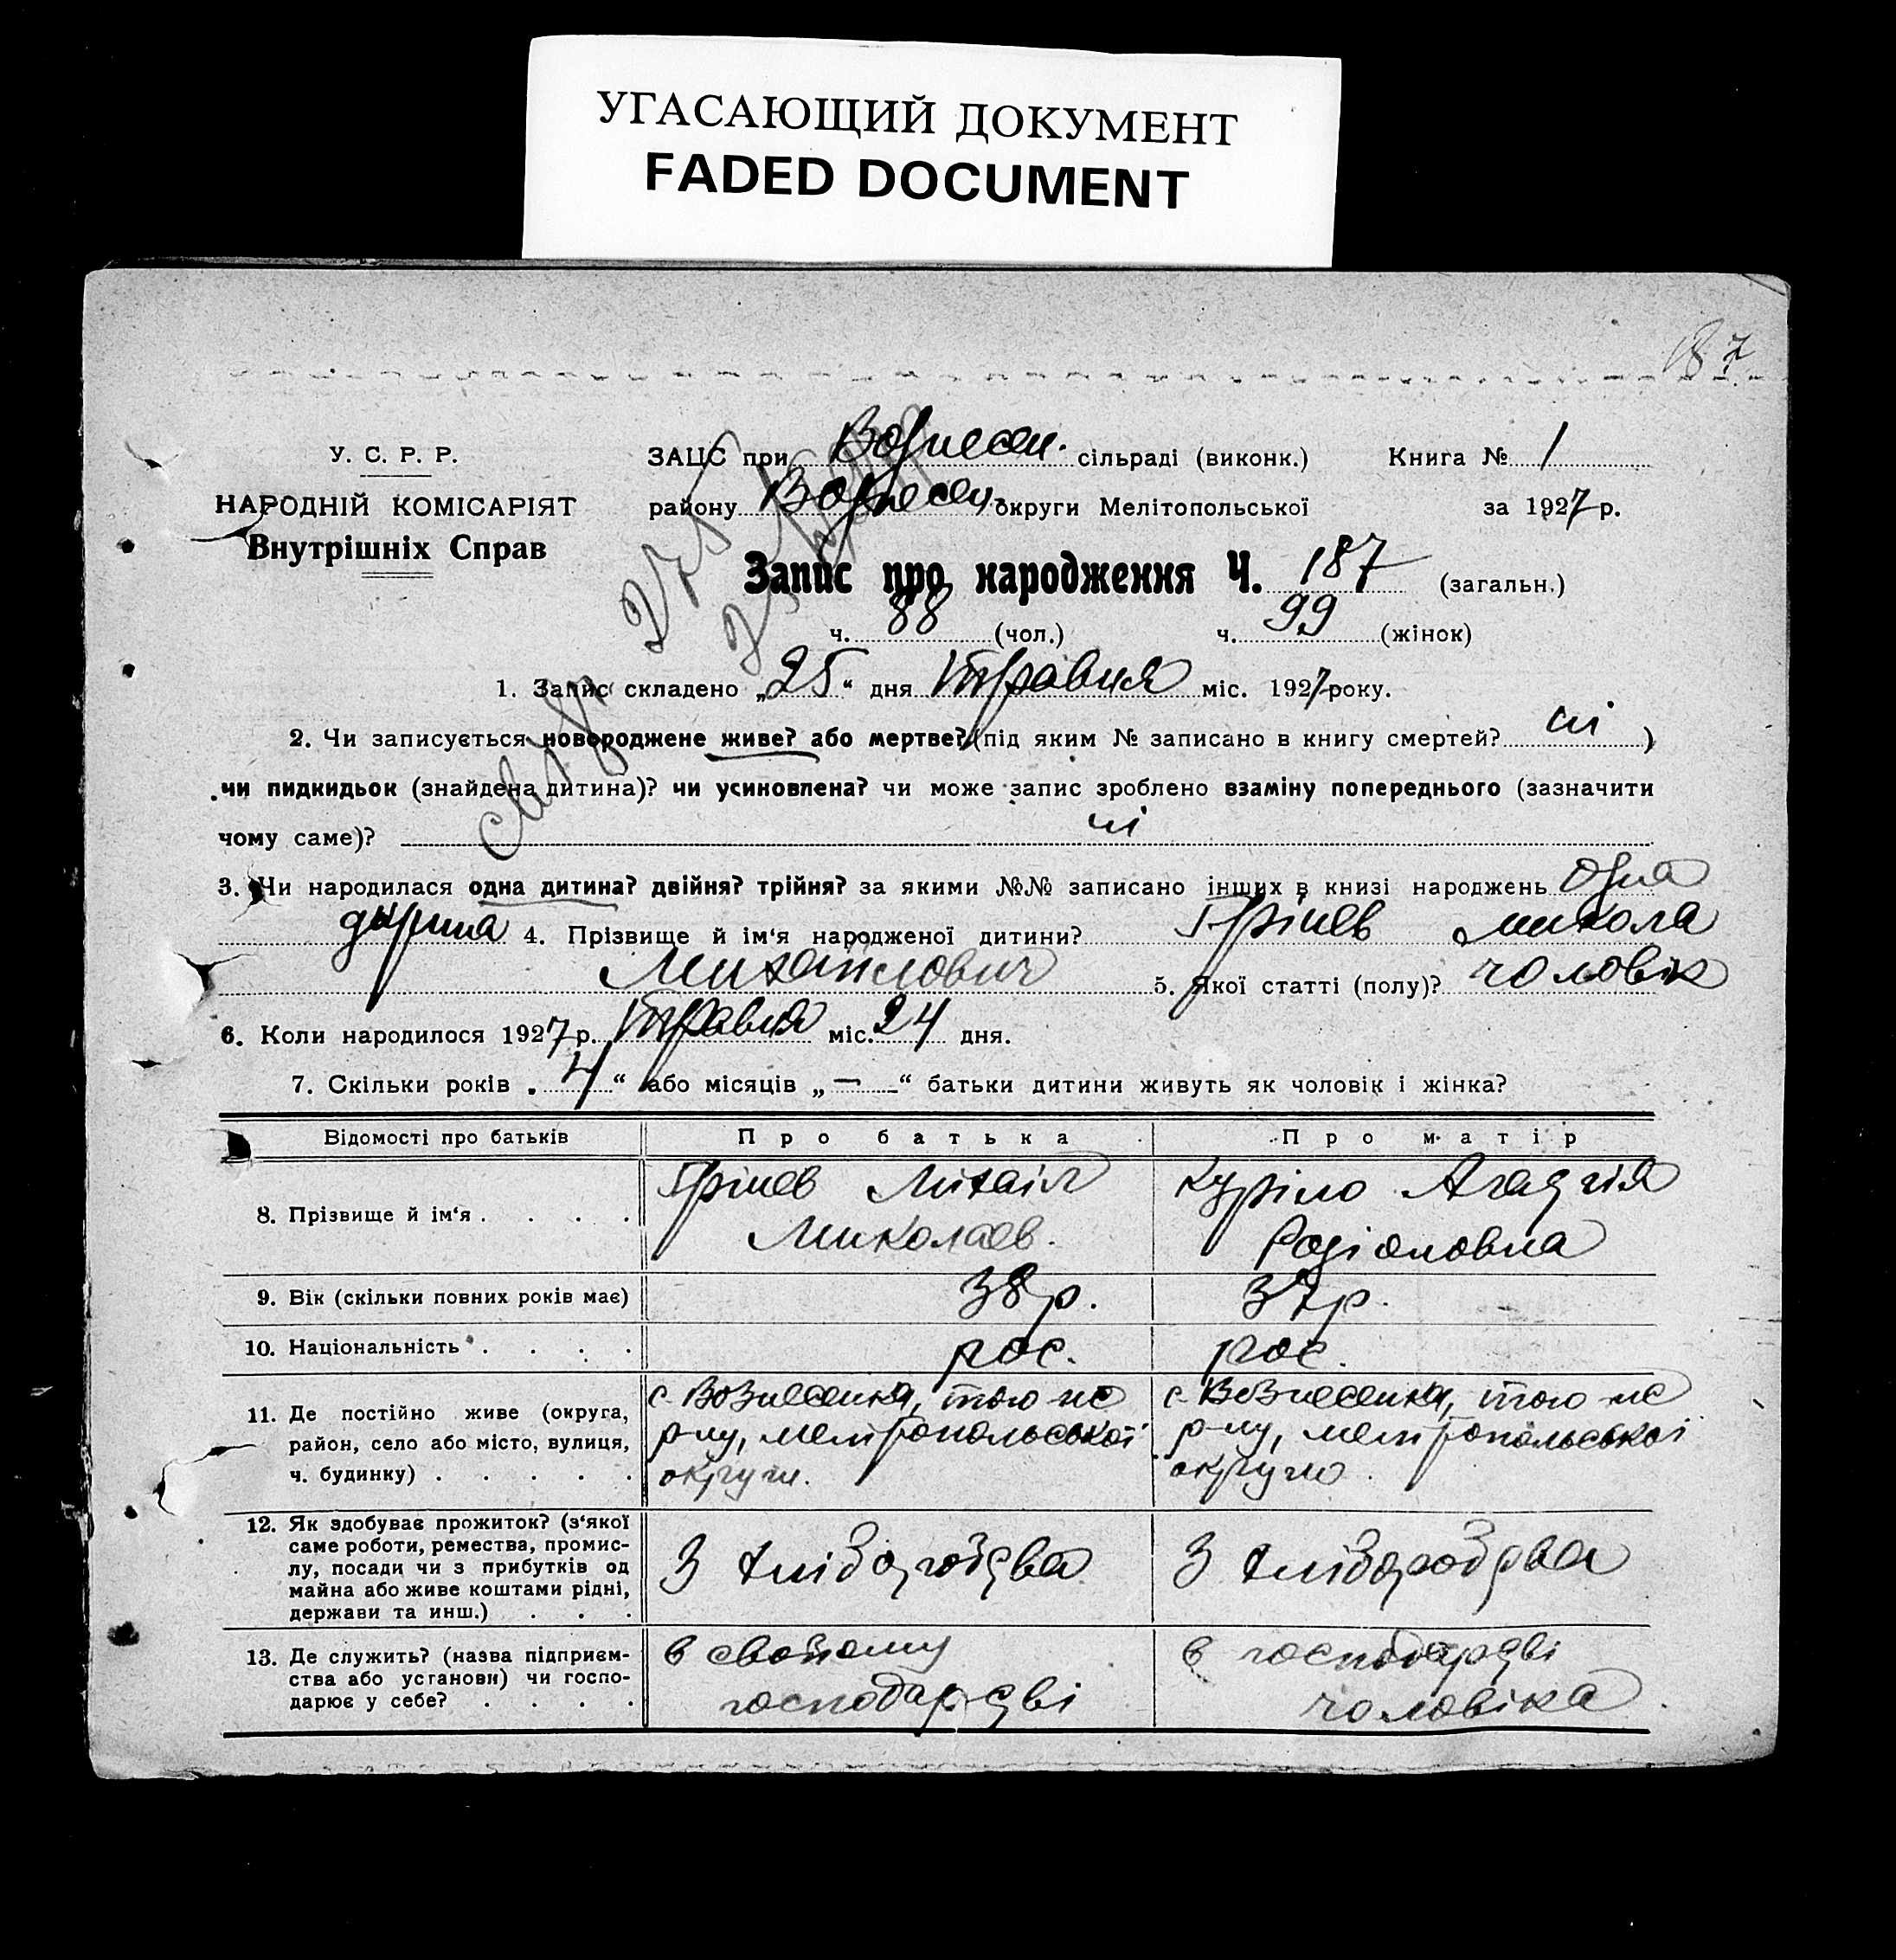 УГАСАЮЩИЙ ДОКУМЕНТ
FADED DOCUMENT
187
У. С. Р. Р.
НАРОДНІЙ КОМІСАРІЯТ
Внутрішніх Справ
ЗАЦС при Вознесен. сільраді (виконк.) Книга № 1
району Вознесен. округи Мелітопольської за 1927 р.
Запис про народження Ч. 187 (загальн.)
ч. 88 (чол.) ч. 99 (жінок)
1. Запис складено „25“ дня травня міс. 1927 року.
2. Чи записується новороджене живе? або мертве? (під яким № записано в книгу смертей? ні )
чи пидкидьок (знайдена дитина)? чи усиновлена? чи може запис зроблено взаміну попереднього (зазначити
чому саме)? ні
3. Чи народилася одна дитина? двійня? трійня? за якими №№ записано інших в книзі народжень одна
дитина 4. Прізвище й ім‘я народженої дитини? Грінев Микола
Михайлович 5. Якої статті (полу)? чоловік
6. Коли народилося 1927 р. травня міс. 24 дня.
7. Скільки років „4“ або місяців „—“ батьки дитини живуть як чоловік і жінка?
Відомості про батьків Про батька Про матір
8. Прізвище й ім‘я . . . . Грінев Міхаіл Миколаєв. Куріло Агафія Родіоновна
9. Вік (скільки повних років має) 38 р. 37 р.
10. Національність . . . . рос. рос.
11. Де постійно живе (округа, район, село або місто, вулиця, ч. будинку) . . . . . с. Вознесенка, того же р-ну, мелітопольської округи. с. Вознесенка, того же р-ну, мелітопольської округи.
12. Як здобуває прожиток? (з‘якої саме роботи, ремества, промислу, посади чи з прибутків од майна або живе коштами рідні, держави та инш.) . . . З хлібороб З хлібороб
13. Де служить? (назва підприємства або установи) чи господарює у себе? . . . . в свойому господарстві в господарстві чоловіка